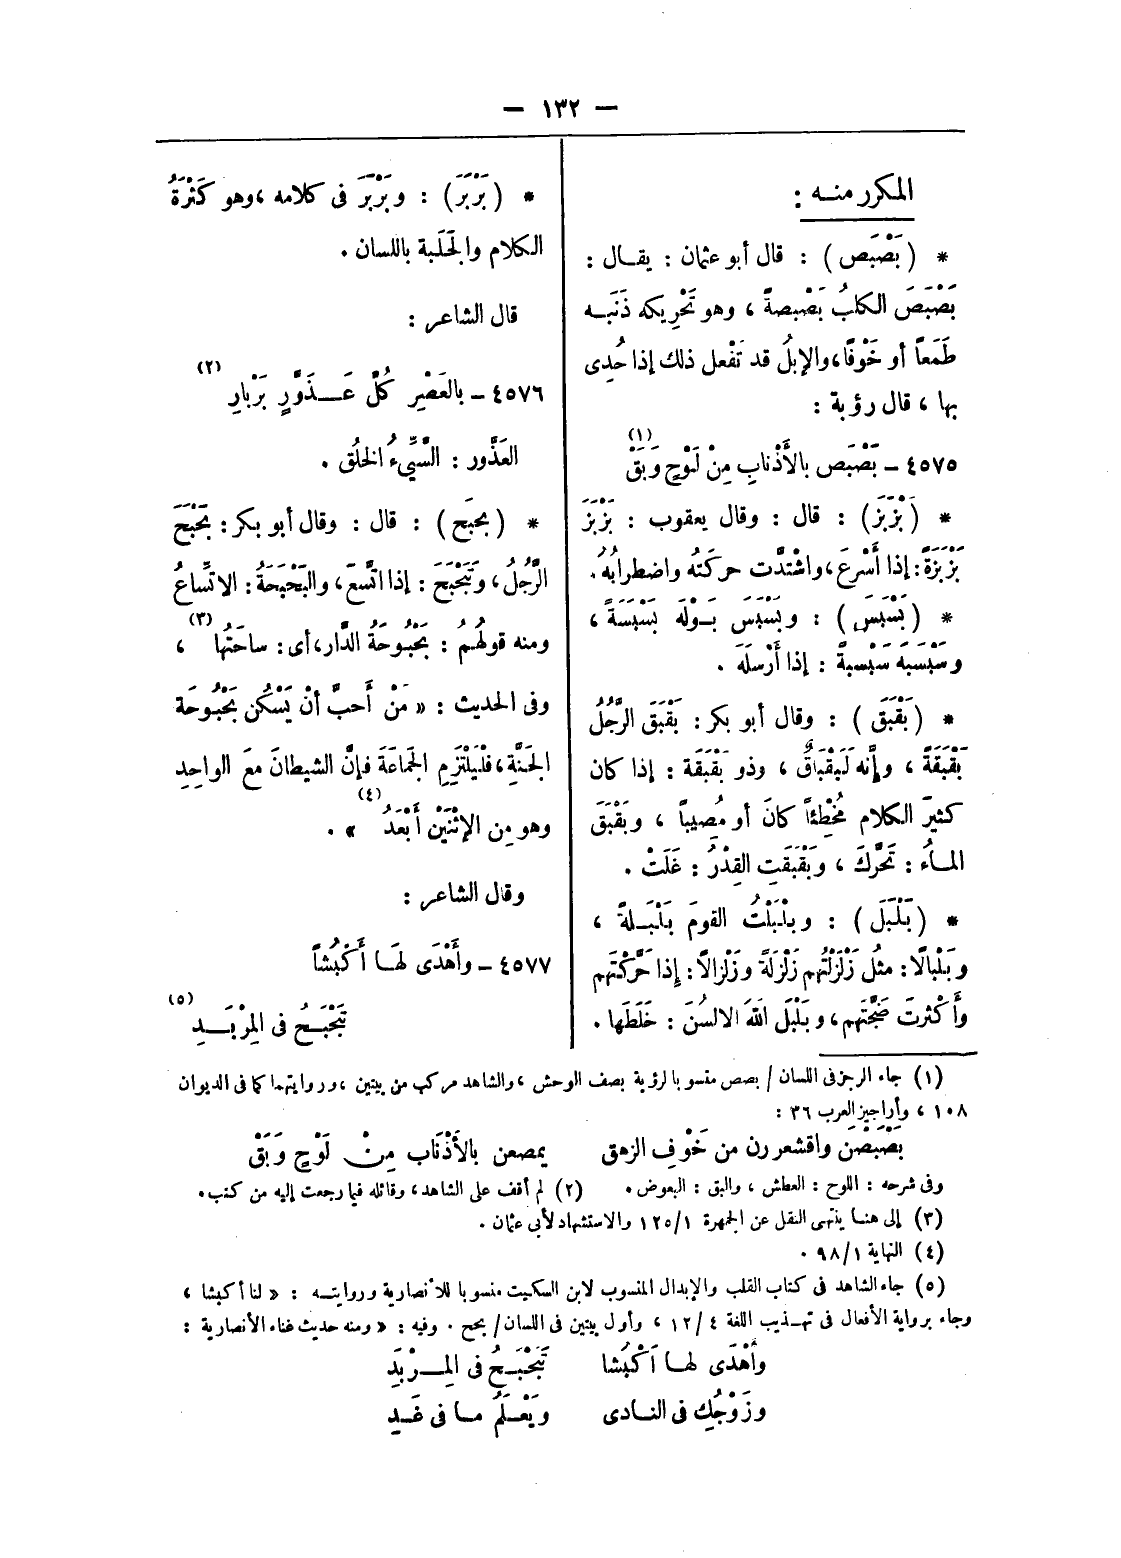 — ١٣٢ —
المكرر منه :
* ( بَصْبَص ) : قال أبو عثمان : يقال :
بَصْبَصَ الكلبُ بَصْبصةً ، وهو تَحْرِيكه ذَنَبه
طَمَعاً أو خَوْفًا ، والإبلُ قد تَفْعل ذلك إذا حُدِى
بها ، قال رؤبة :
٤٥٧٥ - بَصْبَص بالأَذْنابِ مِنْ لَوْحٍ وَبَقْ (١)
* ( بَزْبَزَ ) : قال : وقال يعقوب : بَزْبَزَ
بَزْبَزَةً : إذا أَسْرعَ ، واشْتدَّت حركتُه واضطرابُهُ .
* ( بَسْبَسَ ) : وبَسْبَسَ بَوْلَه بَسْبَسَةً ،
وسَبْسَبَهُ سَبْسبةً : إذا أَرْسلَهَ .
* ( بَقْبَقَ ) : وقال أبو بكر : بَقْبَقَ الرَّجُلُ
بَقْبَقَةً ، وإنَّه لَبَقْبَاقٌ ، وذو بَقْبَقَة : إذا كان
كثيرَ الكلام مُخْطِئاً كانَ أو مُصِيباً ، وبَقْبَقَ
الماءُ : تَحَّركَ ، وبَقْبَقَتِ القِدْرُ : غَلَتْ .
* ( بَلْبَلَ ) : وبلْبَلْتُ القومَ بَلْبَلةً ،
وبَلْبالًا : مثلُ زَلْزَلْتُهم زَلْزلَةً وزَلْزالًا : إذا حَرَّكْتَهم
وأَكْثرتَ ضَجَّتَهم ، وبَلْبَلَ اللهَ الالسُنَ : خَلَطَها .
* ( بَرْبَرَ ) : وبَرْبَرَ فى كلامه ، وهو كَثْرَةُ
الكلام والجَلَبة باللسان .
قال الشاعر :
٤٥٧٦ - بالعَصْرِ كُلَّ عَذَوَّرٍ بَرْبارِ (٢)
العَذَّور : السَّيِّىءُ الخلُق .
* ( بحبَح ) : قال : وقال أبو بكر : بَحْبَحَ
الرَّجُلُ ، وتَبَحْبَحَ : إذا اتَّسعَ ، والبَحْبَحَةُ : الاتِّساعُ
ومنه قولُهُمُ : بَحْبُوحَةُ الدَّار ، أى : ساحَتُها (٣) ،
وفى الحديث : « مَنْ أَحبَّ أنْ يَسْكُن بَحْبُوحَة
الجَنَّةِ ، فلْيَلْتَزِمِ الجَماعَةَ فإنَّ الشيطانَ مَعَ الواحِدِ
وهو مِن الإثْنَيْن أَبْعَدُ (٤) » .
وقال الشاعر :
٤٥٧٧ - وأَهْدَى لهَا أَكْبُشاً
تَبَحْبَحُ فى المِرْبَدِ (٥)
(١) جاء الرجز فى اللسان / بصص منسوبا لرؤبة بصف الوحش ، والشاهد مركب من بيتين ، وروايتهما كما فى الديوان
١٠٨ ، وأراجيز العرب ٣٦ :
بَصْبَصْنَ واقشعررن من خَوْفِ الزهق يمصعن بالأَذْنَاب مِنْ لَوْحٍ وَبَقْ
وفى شرحه : اللوح : العطش ، والبق : البعوض . (٢) لم أقف على الشاهد ، وقائله فيما رجعت إليه من كتب .
(٣) إلى هنا ينتهى النقل عن الجمهرة ١/ ١٢٥ والاستشهاد لأبى عثمان .
(٤) النهاية ١/ ٩٨ .
(٥) جاء الشاهد فى كتاب القلب والإبدال المنسوب لابن السكيت منسوبا للأنصارية وروايته : « لنا أكبشا ،
وجاء برواية الأفعال فى تهذيب اللغة ٤/ ١٢ ، وأول بيتين فى اللسان / بحح . وفيه : « ومنه حديث غناء الأنصارية :
وأَهْدَى لها أكْبُشا تَبَحْبَحُ فى المِرْبَدِ
وزَوْجُكِ فى النادى ويَعْلَمُ ما فى غَدِ